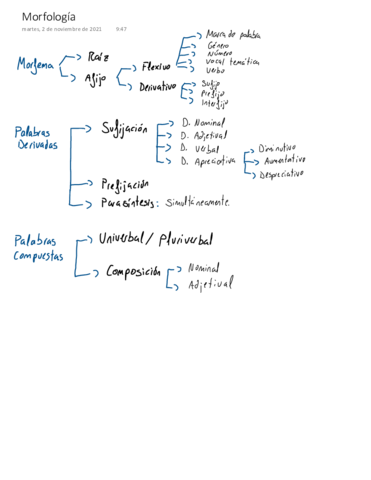 Morfología
martes, 2 de noviembre de 2021 9:47
Morfema
Raíz
Afijo
Flexivo
Marca de palabra
Género
Número
Vocal temática
Verbo
Derivativo
Sufijo
Prefijo
Interfijo
Palabras Derivadas
Sufijación
D. Nominal
D. Adjetival
D. Verbal
D. Apreciativa
Diminutivo
Aumentativo
Despreciativo
Prefijación
Parasíntesis: Simultáneamente.
Palabras Compuestas
Univerbal / Pluriverbal
Composición
Nominal
Adjetival